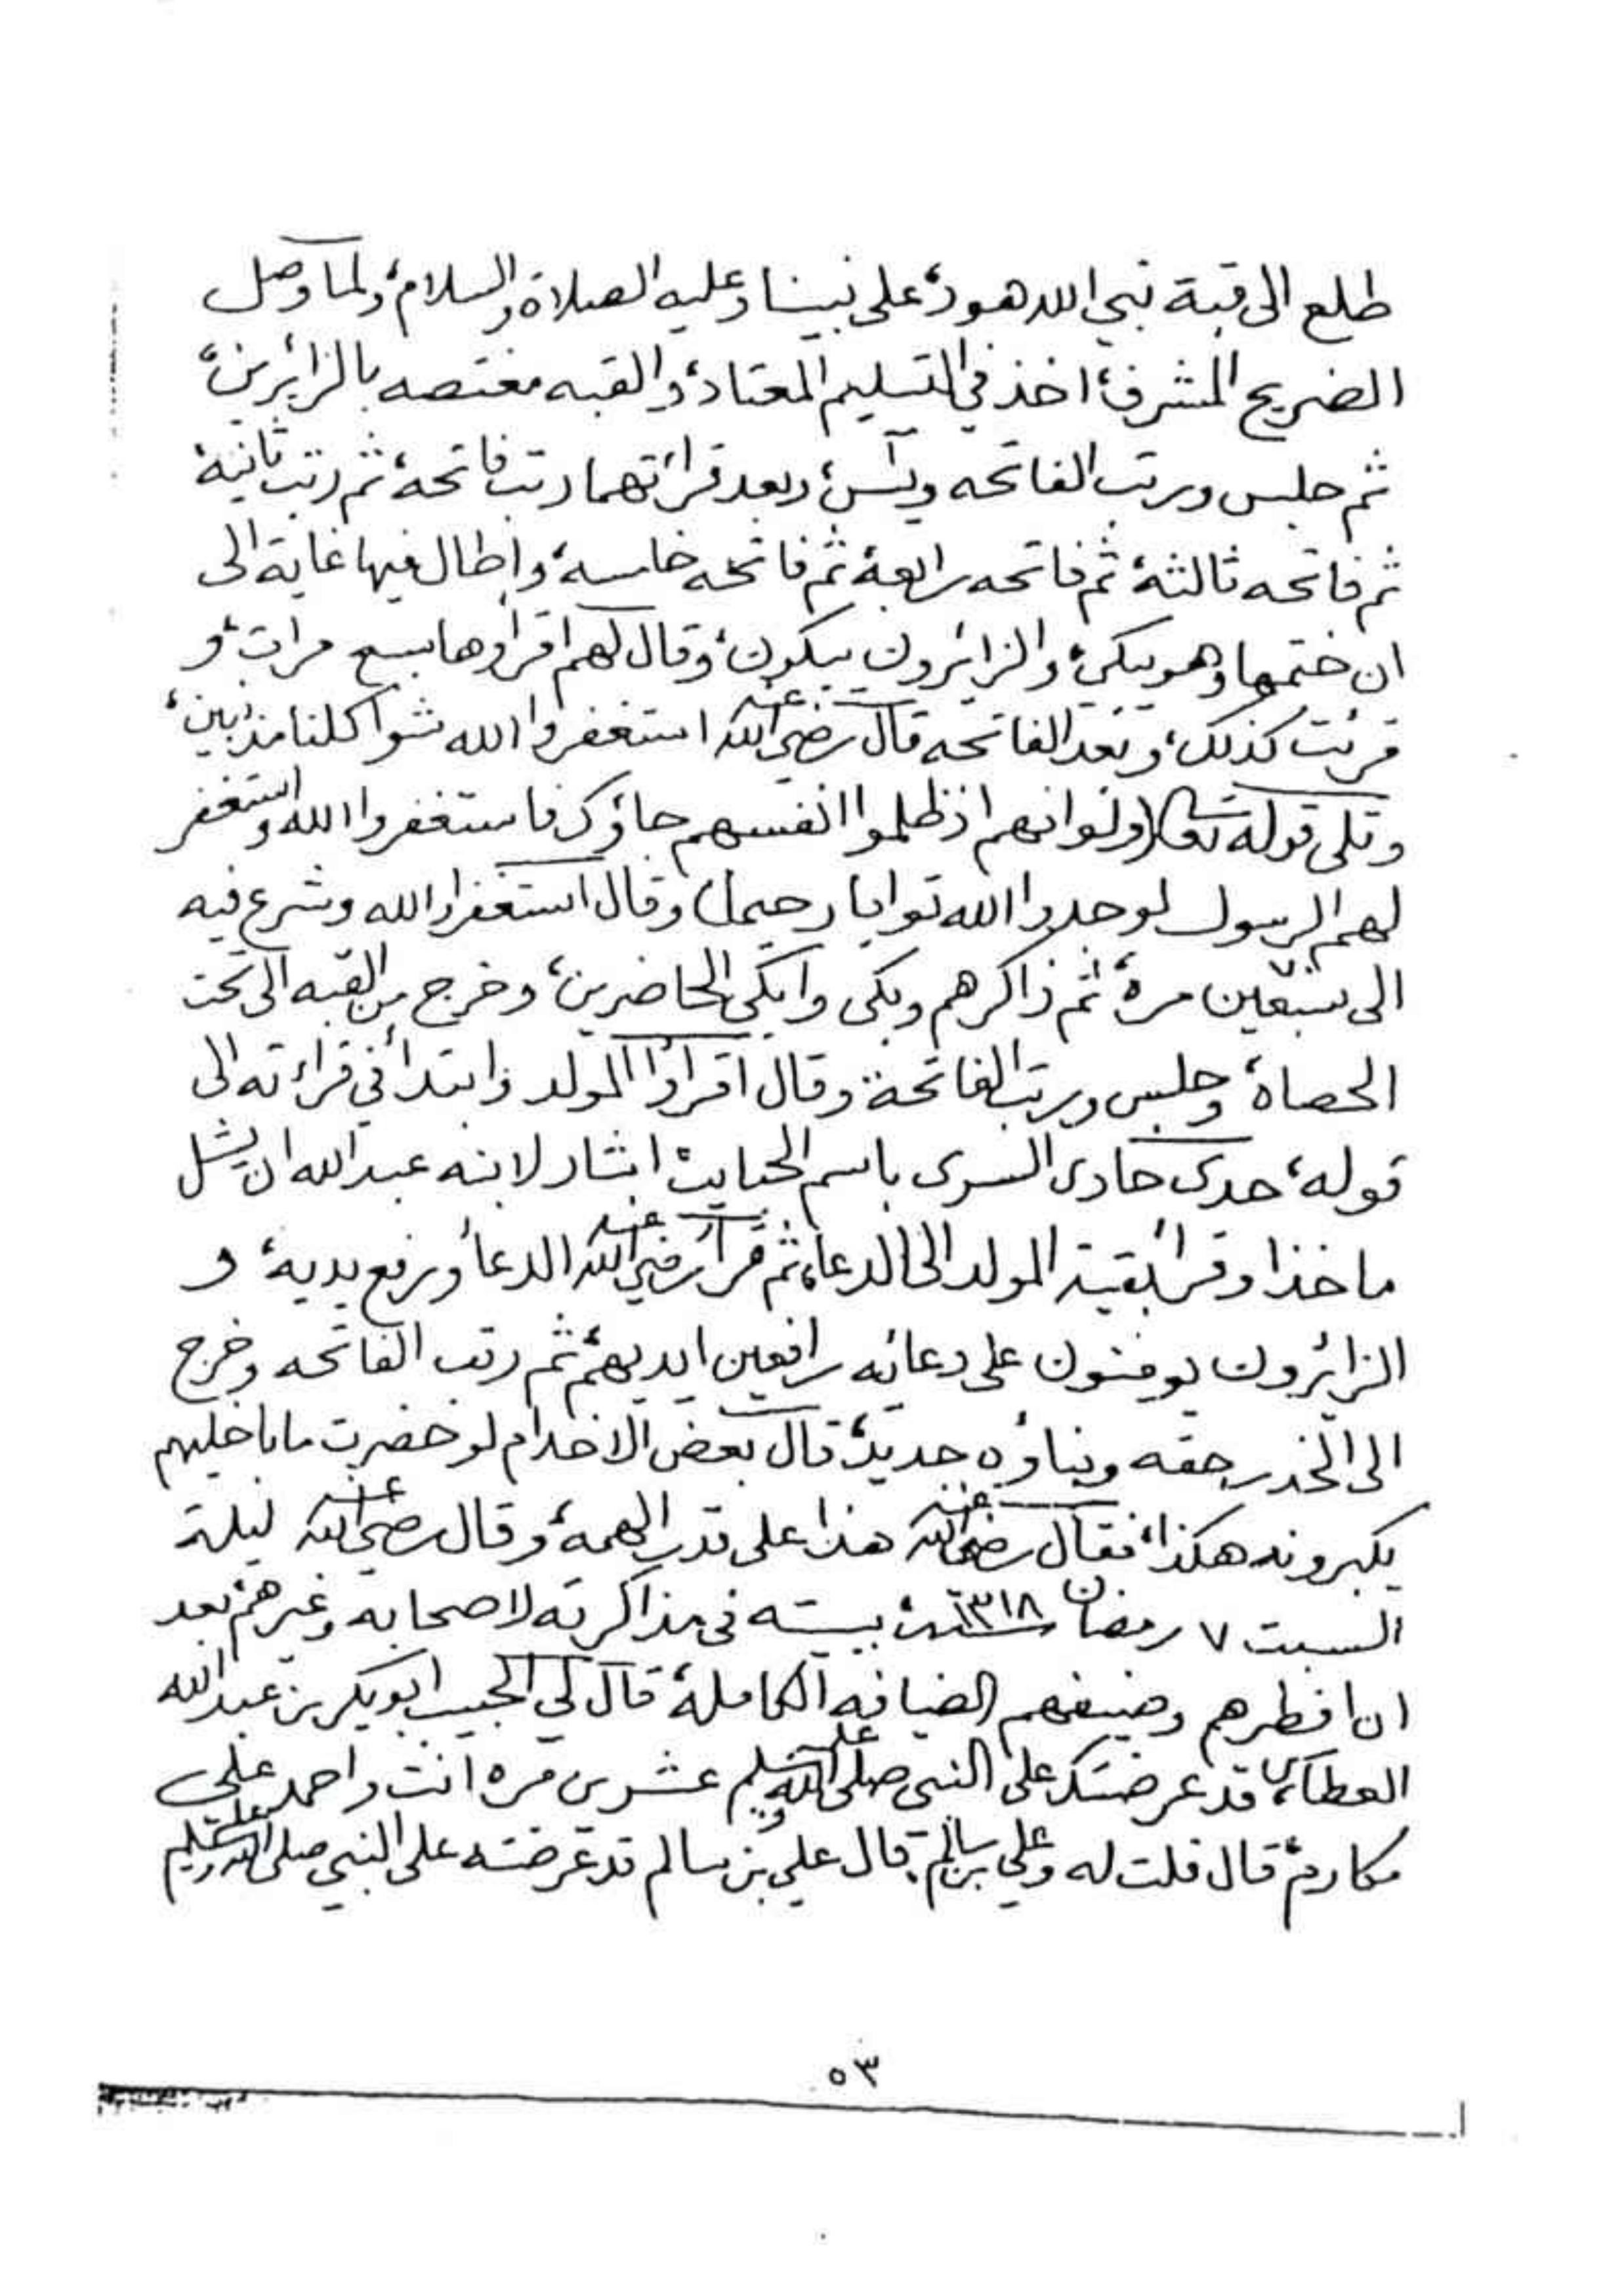 طلع الى قبة نبي الله هود، على نبينا وعليه الصلاة والسلام، ولما وصل
الضريح المشرف، اخذ في التسليم المعتاد، والقبه مغتصه بالزائرين،
ثم جلس ورتب الفاتحه ويآسن، وبعد قرائتهما رتب فاتحة، ثم رتب ثانية،
ثم فاتحه ثالثة، ثم فاتحه رابعة، ثم فاتحه خامسه، واطال فيها غاية الى
ان ختمها وهو يبكي، والزائرون يبكون، وقال لهم اقرأوها سبع مرات، و
قرئت كذلك، وبعد الفاتحه قال رضي الله عنه استغفروا الله شوا كلنا مذنبين،
وتلى قوله تعالى (ولو انهم اذ ظلموا انفسهم جاؤك فاستغفروا الله واستغفر
لهم الرسول لوجدوا الله توابا رحيما) وقال استغفروا الله وشرع فيه
الى سبعين مرة، ثم ذاكرهم وبكى وابكى الحاضرين، وخرج من القبه الى تحت
الحصاة، وجلس ورتب الفاتحة، وقال اقرأوا المولد وابتدأ في قراءته الى
قوله، حدى حادى السرى باسم الحبايب، اشار لابنه عبد الله ان يشل
ماخذا وقرأ بقية المولد الى الدعاء، ثم قرأ رضي الله عنه الدعأ ورفع يديه، و
الزائرون يومنون على دعائه رافعين ايديهم، ثم رتب الفاتحه وخرج
الى الخدر حقه وبناؤه جديد، قال بعض الاخدام لو خضرت ما باخليهم
يكبرونه هكذا، فقال رضي الله عنه هذا على قدر الهمة، وقال رضي الله عنه ليلة
السبت ٧ رمضان سنة ١٣١٨ بيته في مذاكرته لاصحابه وغيرهم، بعد
ان افطرهم وضيفهم الضيافه الكاملة، قال لي الحبيب ابوبكر بن عبد الله
العطاس، قد عرضتك على النبي صلى الله عليه وسلم عشرين مره انت واحمد علي
مكارم، قال قلت له وعلي بن سالم، قال علي بن سالم قد عرضته على النبي صلى الله عليه وسلم
٥٣